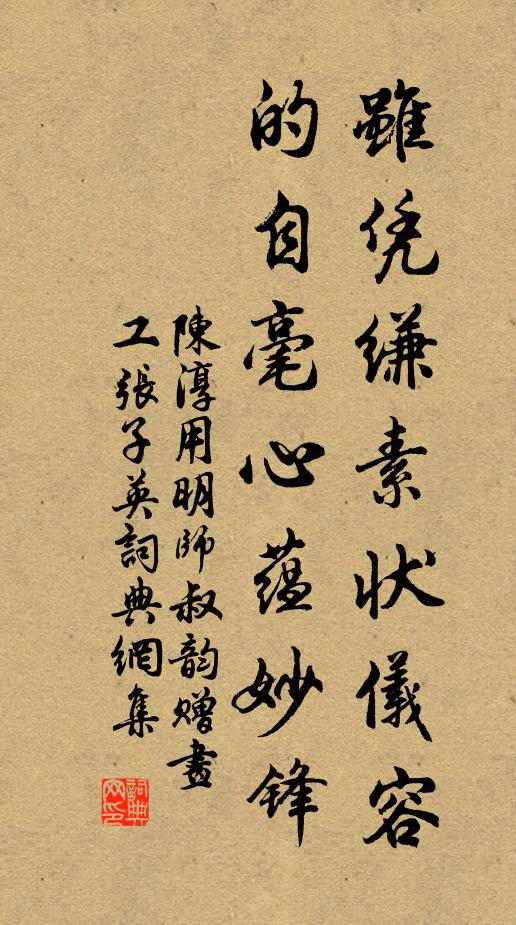 雖凭縑素状儀容
的自毫心蕴妙锋
陳淳用明师叔韵赠畫
工張子英詞典網集
詞典网印